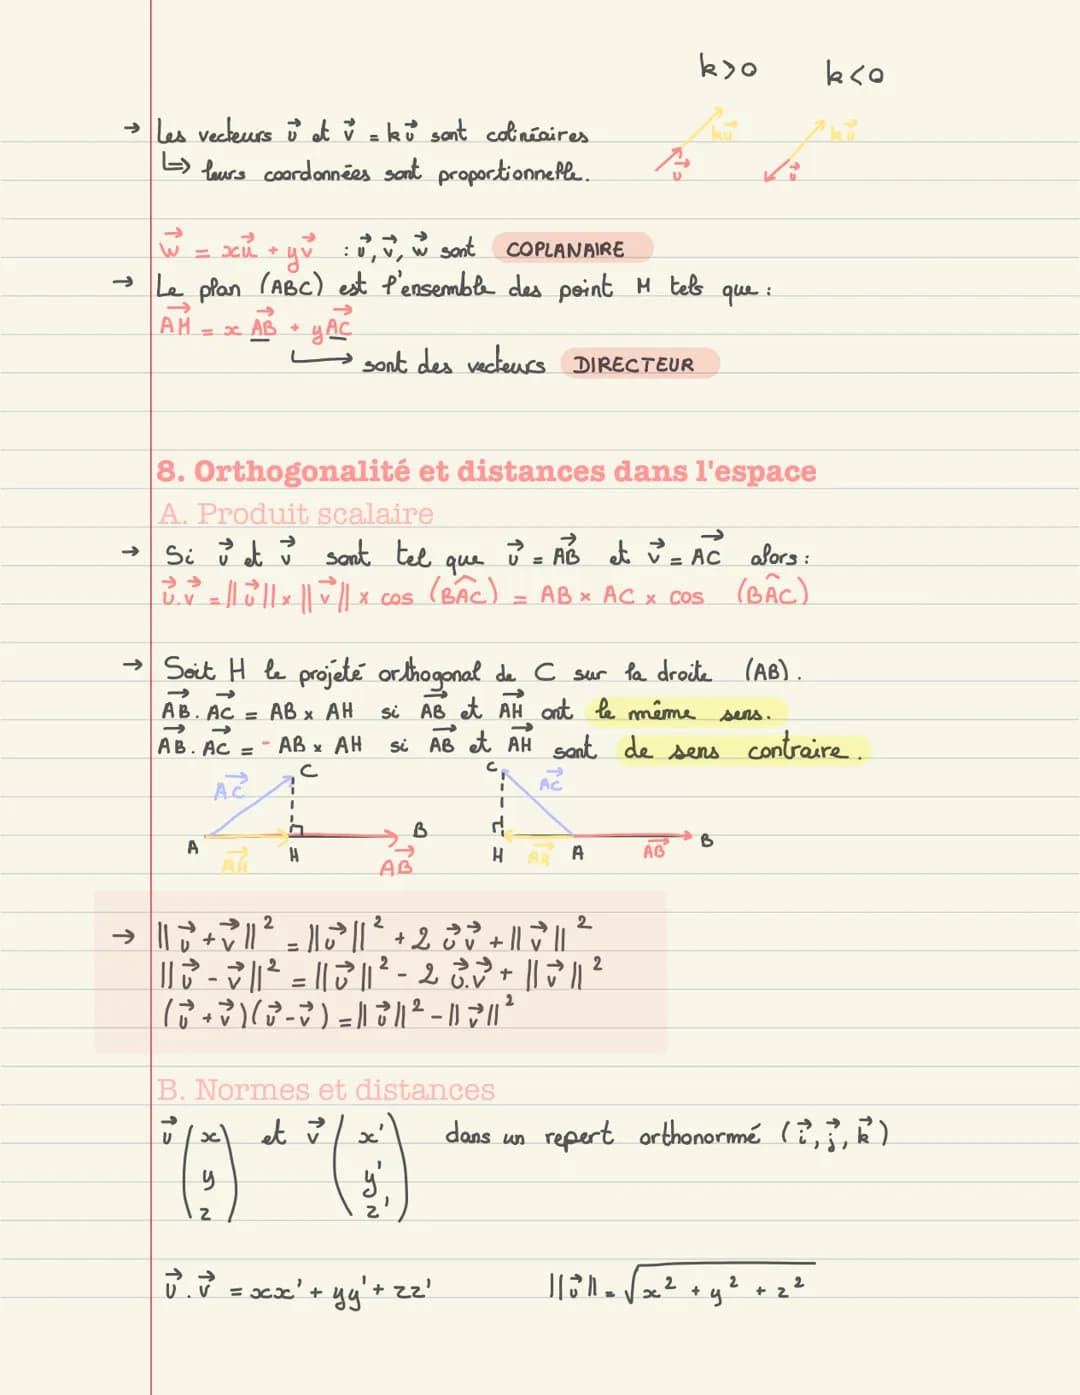 k>0 k<0
→ Les vecteurs u⃗ et v⃗ = ku⃗ sont colinéaires
ku⃗ u⃗ ku⃗ u⃗
↳ leurs coordonnées sont proportionnelle.
w⃗ = xu⃗ + yv⃗ : u⃗, v⃗, w⃗ sont COPLANAIRE
→ Le plan (ABC) est l'ensemble des point M tels que :
AM⃗ = x AB⃗ + yAC⃗
→ sont des vecteurs DIRECTEUR
8. Orthogonalité et distances dans l'espace
A. Produit scalaire
→ Si u⃗ et v⃗ sont tel que u⃗ = AB⃗ et v⃗ = AC⃗ alors :
u⃗.v⃗ = ||u⃗|| x ||v⃗|| x cos (BÂC) = AB x AC x cos (BÂC)
→ Soit H le projeté orthogonal de C sur la droite (AB).
AB⃗. AC⃗ = AB x AH si AB⃗ et AH⃗ ont le même sens.
AB⃗. AC⃗ = - AB x AH si AB⃗ et AH⃗ sont de sens contraire.
AC⃗ C C AC⃗
A AH⃗ H AB⃗ B H A AB⃗ B
→ ||u⃗ + v⃗||² = ||u⃗||² + 2 u⃗v⃗ + ||v⃗||²
||u⃗ - v⃗||² = ||u⃗||² - 2 u⃗.v⃗ + ||v⃗||²
(u⃗ + v⃗)(u⃗ - v⃗) = ||u⃗||² - ||v⃗||²
B. Normes et distances
u⃗ (x y z) et v⃗ (x' y' z') dans un repert orthonormé (i⃗, j⃗, k⃗)
u⃗.v⃗ = xx' + yy' + zz' ||u⃗|| = √(x² + y² + z²)